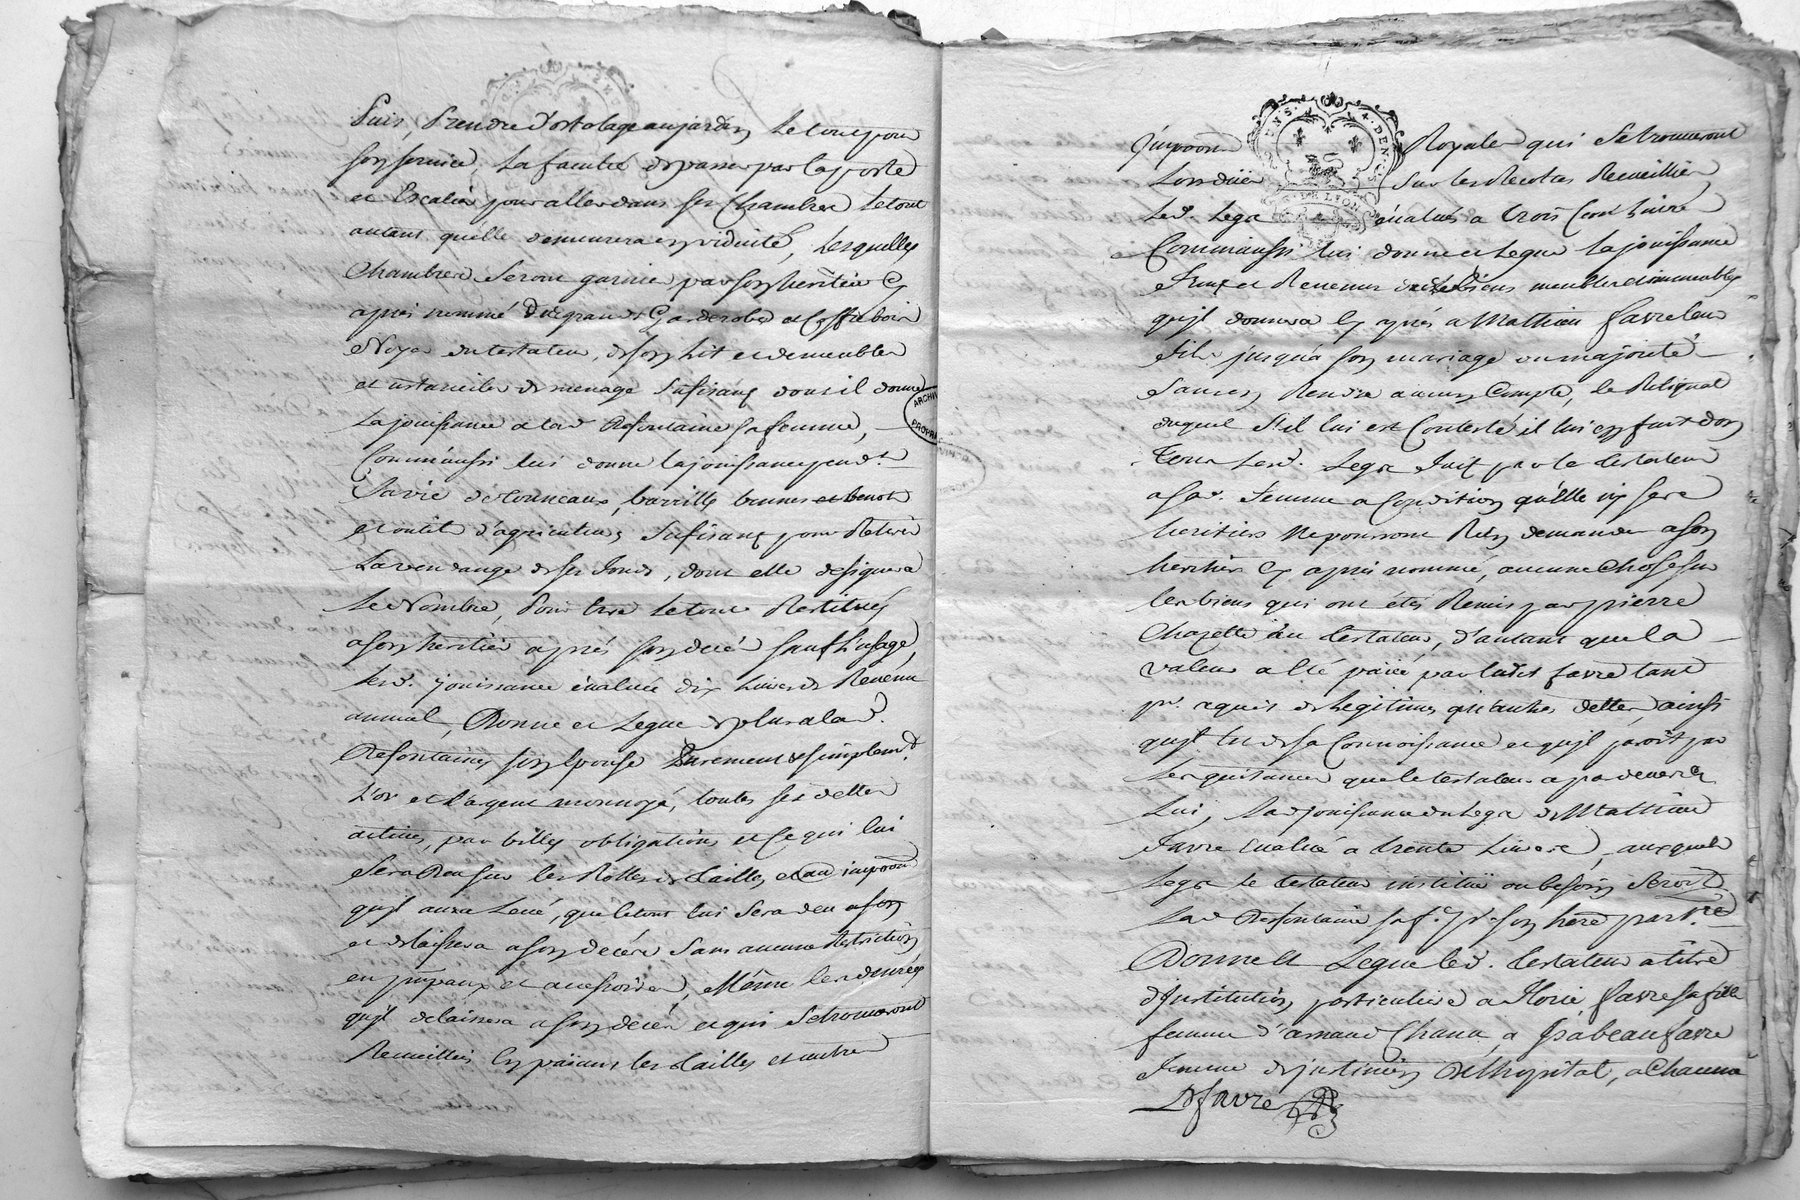 Puis, Prendre d'ortolage au jardin Le tout pour
son service, La faculté de passer par la porte
et Escalier pour aller dans ses Chambres Le tout
autant quelle demeurera en viduité, Lesquelles
Chambres Seront garnies par son heritier Cy
apres nommé grande Garderobe et Coffre bois
Noyer du testateur, de son Lit et de meubles
et ustancilles de menage Sufisans dont il donne
La jouissance a lad. Defontaine sa femme,
Comm'aussi lui donne la jouissance pend.t
Sa vie de tonneaux, barrilles bennes et benot
et outil d'agriculteur Sufisans pour Retirer
La vendange de ses fonds, dont elle designera
Le Nombre, Pour être Le tout Restitués
a son heritier après son decé sauf L'usage,
Lesd. jouissance évaluée dix Livres de Revenu
annuel, Donne et Legue de plus a lad.
Defontaine son Epouse Purement et simplem.t
L'or et L'argent monnoyé, toutes ses dettes
actives, par billes obligations et Ce qui lui
Sera Deu sur les Rolles de tailles et au impoons
qu'jl aura Levé, que le tout lui Sera deu a son
et delaissera a son decéé Sans aucune Restriction
en prjpaux et accessoires, Même les denrées
qu'jl delaissera a son decéé et qui Se trouveront
Recueillies En païant les tailles et autres
Jmpoons Royales qui Se trouveront
Lors düés Sur les Recoltes Recueillies
Led. Legs évalué a trois Cent Livres
Comm'aussi lui donne et Legue La jouissance
Fruits et Revenus des Biens meubles et immeubles
qu'jl donnera Cy après a Mathieu favre leur
Fils jusqu'a son mariage ou majorité
Sans en Rendre aucun Compte, Le Reliquat
duquel S'il lui est Contesté il lui en fait don
Tous Lesd. Legs fait par le testateur
a sad. Femme a Condition qu'Elle ny ses
heritiers Ne pourront Rien demander a son
heritier Cy après nommé, aucune Chose sur
les biens qui ont étés Remis par pierre
Chazelle au testateur, d'autant que la
valeur a Eté païée par ludit favre tant
pr. aquis de Legitimes qu'autres dettes, ainsi
qu'jl Est de sa Connoissance et qu'jl paroît par
Les quitances que le testateur a par devers
Lui, Lad jouissance du Legs de Mathieu
Favre Evalué a trente Livres, auxquels
Legs Le testateur institüe ou besoin Seroit
Lad Defontaine sa f. son here partre
Donne et Legue led. testateur a titre
d'Jnstitution particuliere a Florie favre sa fille
femme d'arnaud Chana, a Jsabeau favre
Femme de justinien Delhopital, a Chauna
Dfavre